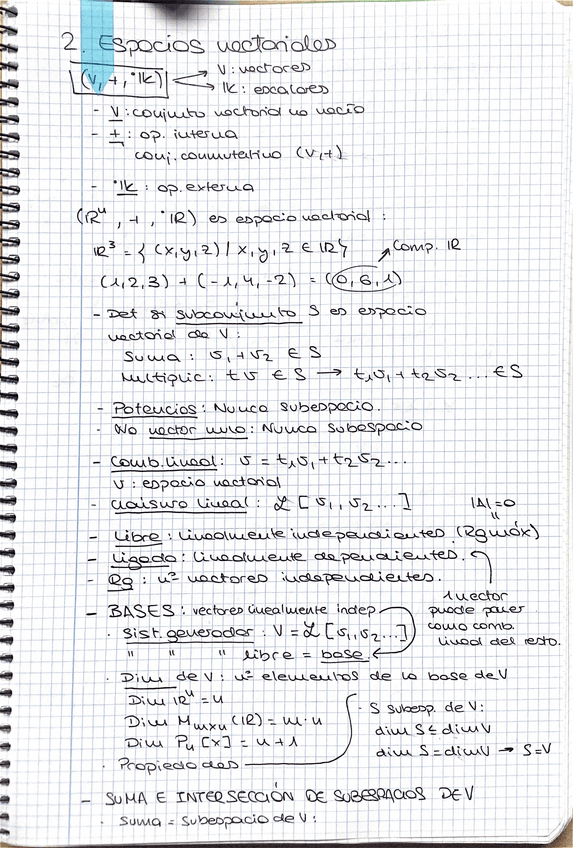 2. Espacios vectoriales
(V, +, ·IK) → V: vectores
→ IK: escalares
- V: conjunto vectorial no vacío
- +: op. interna
conj. conmutativo (V,+)
- ·IK: op. externa
(IRⁿ, +, ·IR) es espacio vectorial:
IR³ = { (x,y,z) / x,y,z ∈ IR}
Comp. IR
(1,2,3) + (-1,4,-2) = (0,6,1)
- Det si subconjunto S es espacio
vectorial de V:
Suma: v₁+v₂ ∈ S
Multiplic: tv ∈ S → t₁v₁+t₂v₂... ∈ S
- Potencias: Nunca subespacio.
- No vector nulo: Nunca subespacio
- Comb. lineal: v = t₁v₁+t₂v₂...
V: espacio vectorial
- Clausura lineal: ℒ[v₁, v₂...]
|A|=0
"
- Libre: linealmente independientes (Rg máx)
- Ligada: linealmente dependientes.
- Rg: nº vectores independientes.
1 vector
puede poner
como comb.
lineal del resto.
- BASES: vectores linealmente indep
· Sist. generador: V = ℒ[v₁, v₂...]
" " " libre = base
· Dim de V: nº elementos de la base de V
Dim IRⁿ = n
Dim Mmxn (IR) = m·n
Dim Pn [x] = n+1
· Propiedades
· S subesp. de V:
dim S ≤ dim V
dim S = dim V → S=V
- SUMA E INTERSECCIÓN DE SUBESPACIOS DE V
· Suma = subespacio de V: